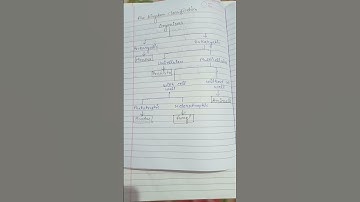 Five Kingdom classification
Organisms
Prokaryotic Eukaryotic
Monera
Unicellular Multicellular
Protista
with cell wall without cell wall
Animalia
Autotrophic Heterotrophic
Plantae Fungi